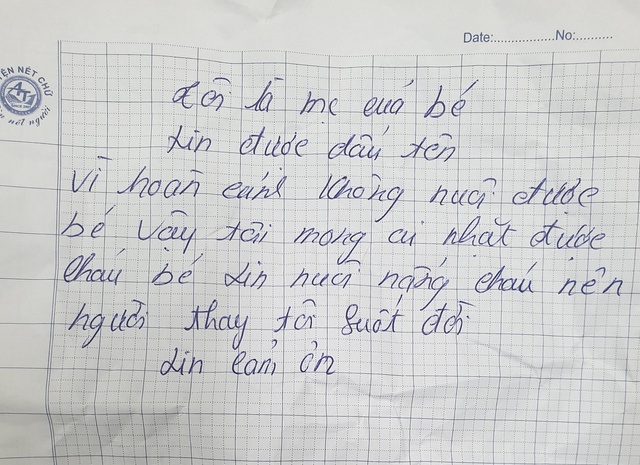 Date:..............No:..........
YÊN NÉT CHỮ
ÈN NẾT NGƯỜI
Tôi là mẹ cuả bé
Xin được dấu tên
Vì hoàn cảnh không nuôi được
bé vậy tôi mong ai nhặt được
cháu bé xin nuôi nặng cháu nên
người thay tôi suốt đời
Xin cảm ơn